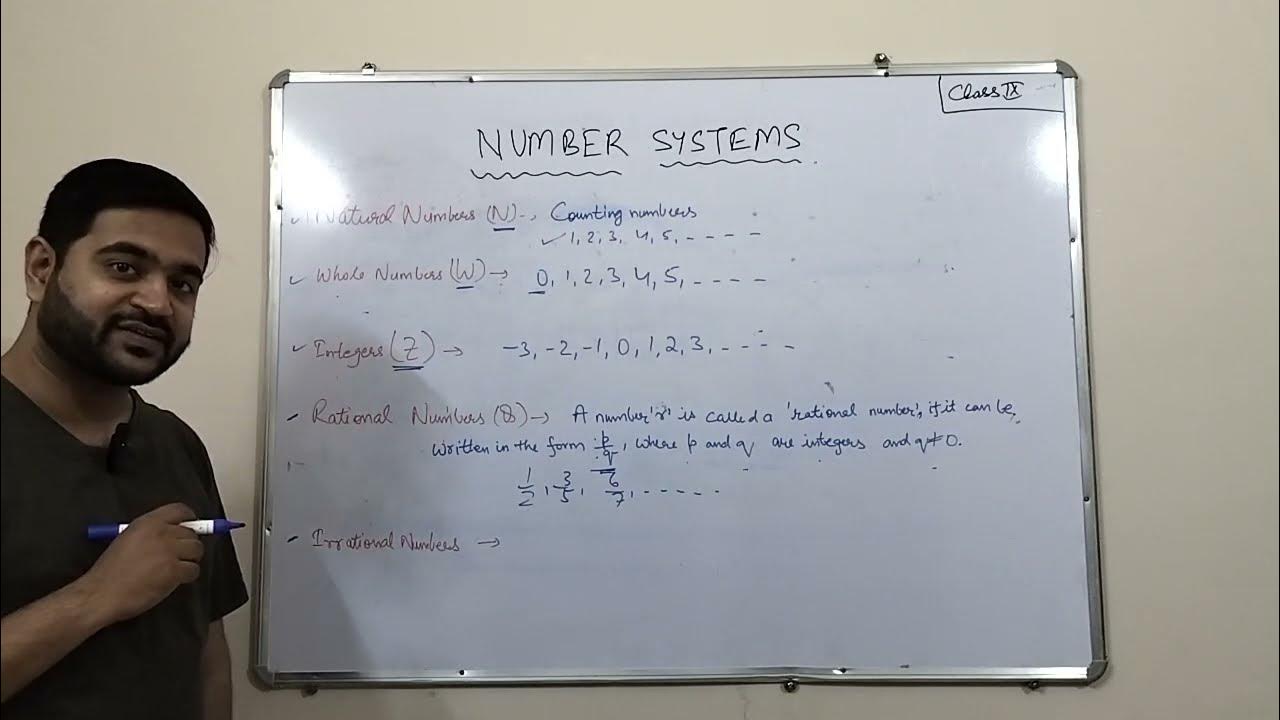 Class IX
NUMBER SYSTEMS
Natural Numbers (N) → Counting numbers
✓ 1, 2, 3, 4, 5, - - - -
Whole Numbers (W) → 0, 1, 2, 3, 4, 5, - - - -
Integers (Z) → -3, -2, -1, 0, 1, 2, 3, - - - -
Rational Numbers (Q) → A number 'r' is called a 'rational number', if it can be
written in the form p/q, where p and q are integers and q≠0.
1/2, 3/5, 6/7, - - - - -
Irrational Numbers →